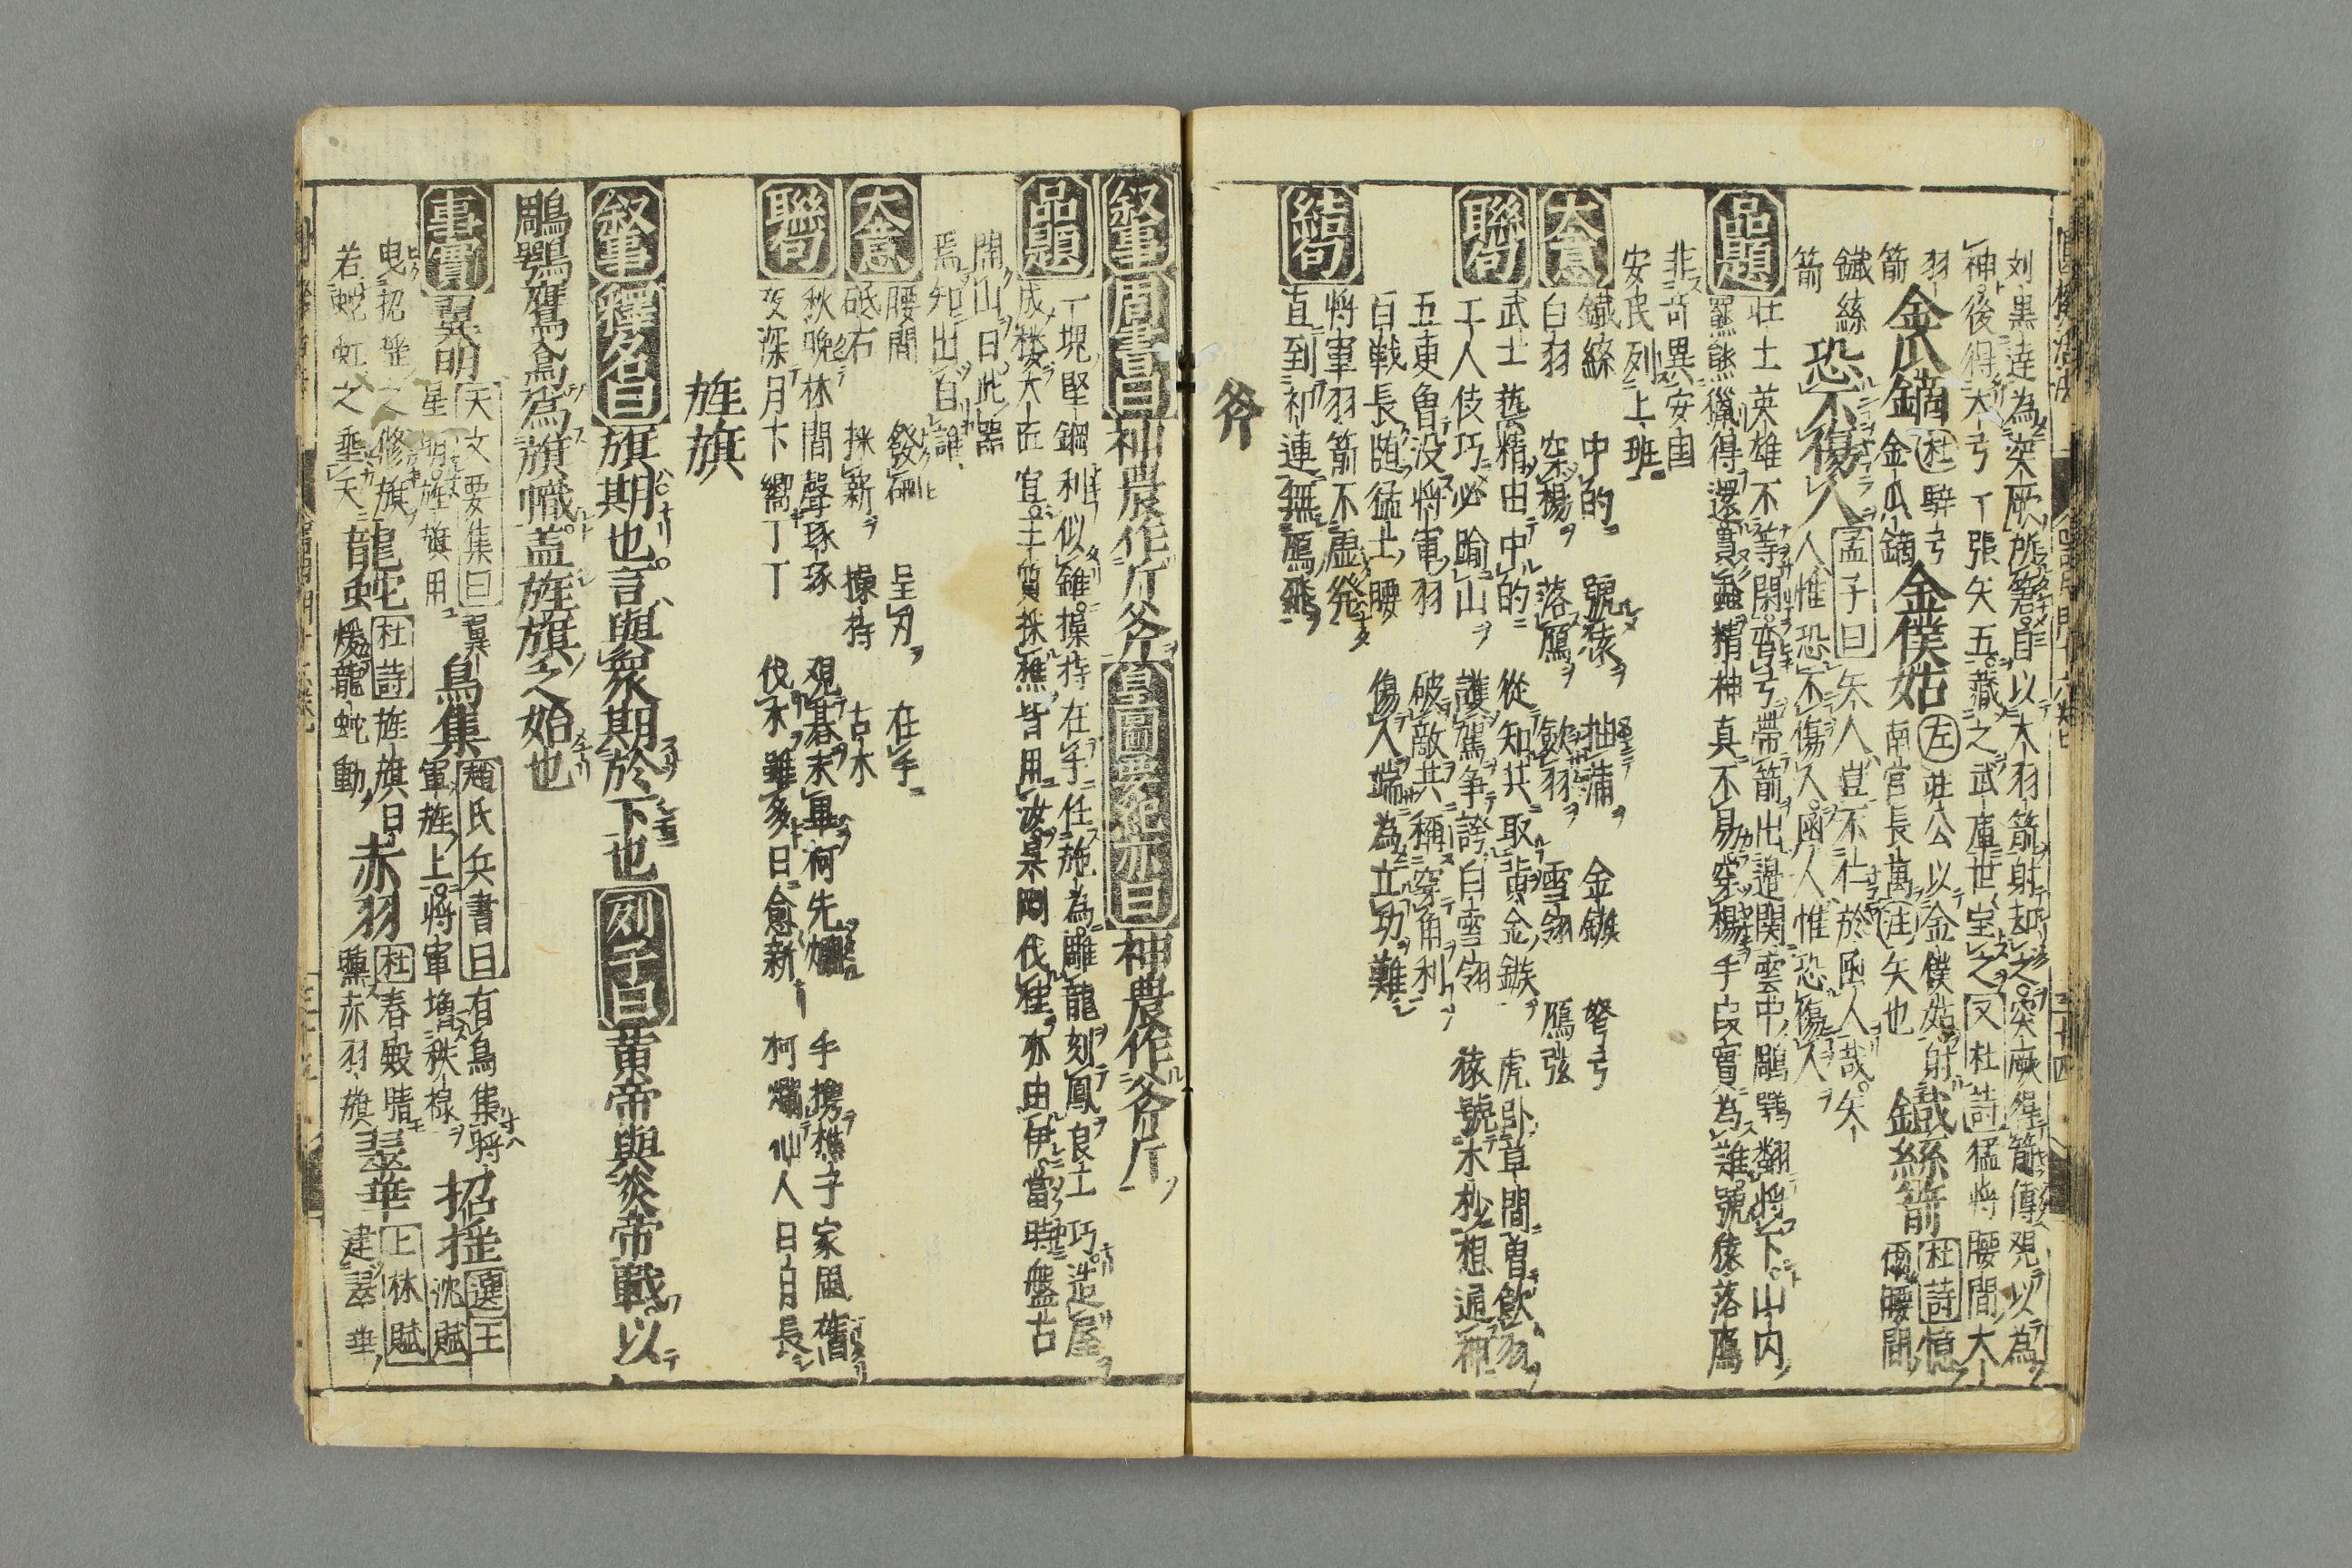 刘黒逹為突厥所窘自以大羽箭射却之突厥得箭傳覌以為
神後得大弓一張矢五藏之武庫世宝之又杜詩猛将腰間大
羽箭
金瓜鏑杜騂弓金瓜鏑
金僕姑左莊公以金僕姑射南宮長萬注矢也
鐡絲箭杜詩憶
鐡絲箭
恐不傷人孟子曰矢人豈不仁於函人哉矢人惟恐不傷人函人惟恐傷人
品題
壮士英雄不等閑弯弓帶箭出邉関雲中鵰鶚翻将下山内
羆熊獵得還貫蝨精神真不易穿楊手段實為誰號猿落鴈
非竒異安国
安民列上班
大意
鐡絲 中的 號猿 抽蒲 金鏃 弩弓
白羽 穿楊 落鴈 飲羽 雪翎 鴈弦
聯句
武士藝精由中的 從知共取黄金鏃 虎卧草間曽飲羽
工人伎巧必踰山 護駕争誇白雪翎 猿號木杪想通神
五更魯没将軍羽 破敵共稱穿角利
百戦長随猛士腰 傷人端為立功難
結句
将軍羽箭不虚発
直到祁連無鴈飛
斧
叙事周書曰神農作斤斧皇圖要紀亦曰神農作斧斤
品題
一塊堅鋼利似錐操持在手任施為雕龍刻鳳良工巧造屋
成楼大匠宜主質採樵皆用汝杲剛伐亦由伊當時盤古
開山日此噐
焉知出自誰
大意
腰間 發硎 呈刃 在手
砥石 採薪 操持 古木
聯句
秋晩林間聲琢琢 覌棊未畢柯先爛 手携樵子家風舊
夜深月下響丁丁 伐木雖多日愈新 柯爛仙人日月長
旌旗
叙事釋名曰旗期也言與衆期於下也列子曰黄帝與炎帝戰以
鵰鶚鷹鳥為旗幟盖旌旗之始也
事實
翼明天文要集曰翼星明旌旗用
鳥集趙氏兵書曰有鳥集将軍旌上将軍増秩禄
招揺選王沈賦
曳招揺之修旗
若蛇虹之垂天
龍蛇杜詩旌旗日煖龍蛇動
赤羽杜春殿晴曛赤羽旗
翠華上林賦建翠華